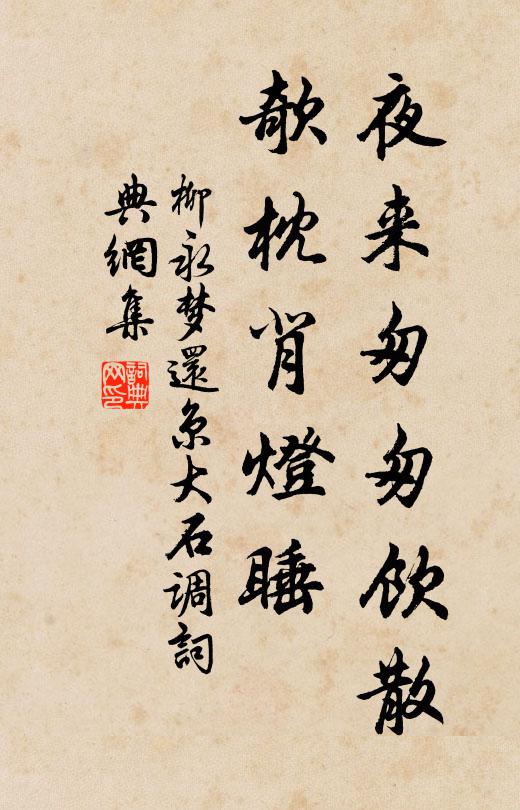 夜来匆匆饮散
欹枕背燈睡
柳永梦還京大石调詞
典網集
詞典网印